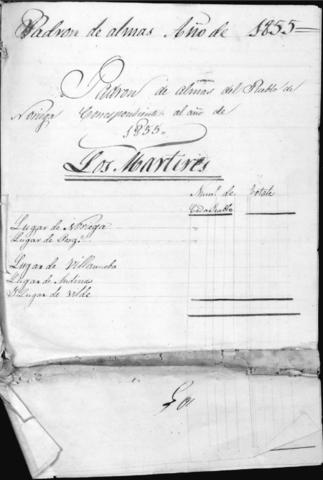 Padron de almas Año de 1855=
Padron de almas del Pueblo de
Noriega Correspondiente al año de
1855.
Los Martires
Num.º de Totale
Cada Pueblo
Lugar de Noriega
Lugar de
Lugar de Villanueba
Lugar de Andinas
Lugar de